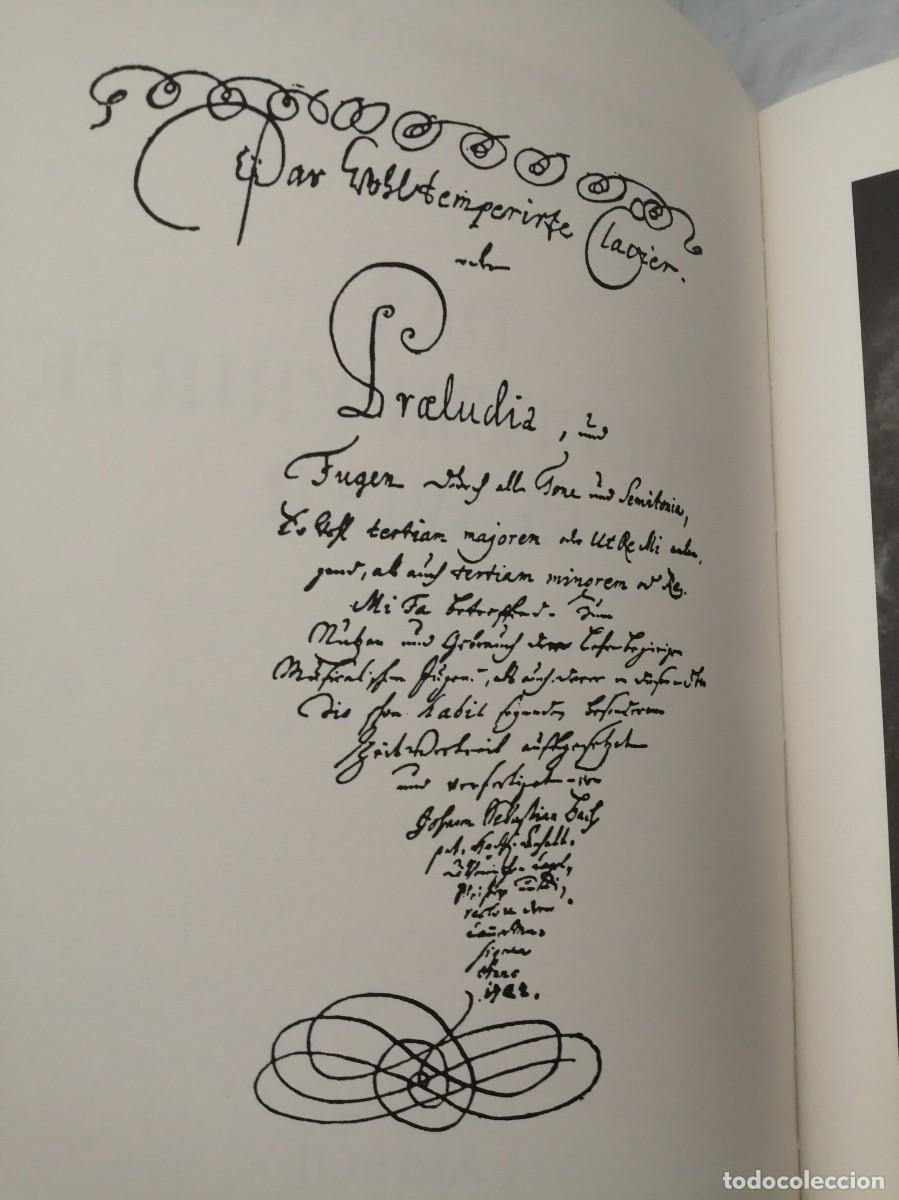 Das Wohltemperirte Clavier.
oder
Præludia, und
Fugen durch alle Tone und Semitonia,
So wohl tertiam majorem oder Ut Re Mi anlan-
gend, als auch tertiam minorem oder Re
Mi Fa betreffend. Zum
Nutzen und Gebrauch der Lehrbegierigen
Musicalischen Jugend, als auch derer in diesem studio
schon habil seyenden besonderem
Zeitvertreib auffgesetzet
und verfertiget von
Johann Sebastian Bach
p.t. HochF. Anhalt-
Cöthenischen Capel-
Meistern und Di-
rectore derer
Cammer Mu-
siquen
Anno
1722.
todocoleccion